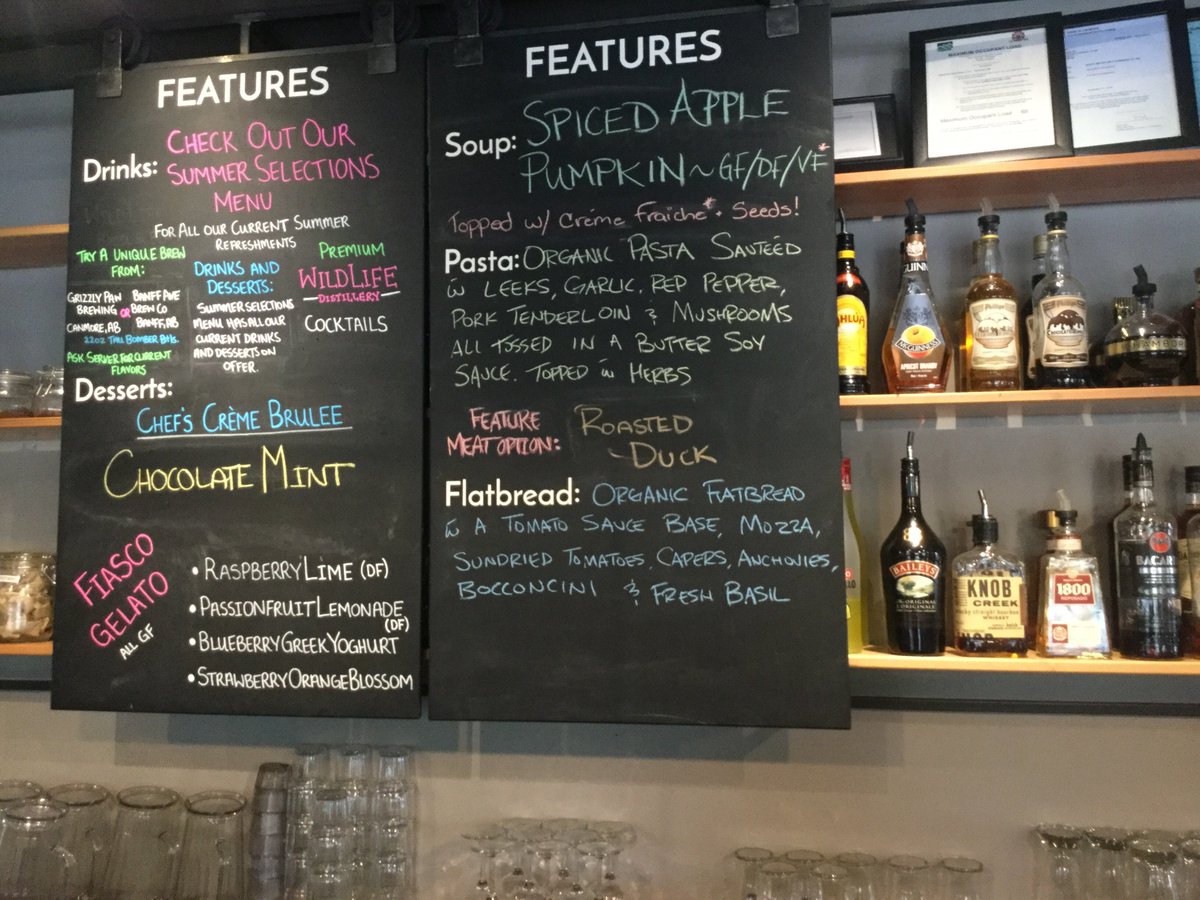 FEATURES
Drinks:
CHECK OUT OUR
SUMMER SELECTIONS
MENU
FOR ALL OUR CURRENT SUMMER
REFRESHMENTS
TRY A UNIQULE BREW
FROM:
GRIZZLY PAW
BREWING
CANMORE, AB
OR
BANFF AVE
BREW CO
BANFF, AB
22oz TALL BOMBER Btls.
ASK SERVER FOR CURRENT
FLAVORS
DRINKS AND
DESSERTS:
SUMMER SELECTIONS
MENU HAS ALL OUR
CURRENT DRINKS
AND DESSERTS ON
OFFER.
PREMIUM
WILDLIFE
DISTILLERY
COCKTAILS
Desserts:
CHEF'S CRÈME BRULEE
CHOCOLATE MINT
FIASCO
GELATO
ALL GF
• RASPBERRY LIME (DF)
• PASSIONFRUIT LEMONADE
(DF)
• BLUEBERRY GREEK YOGHURT
• STRAWBERRY ORANGE BLOSSOM
FEATURES
Soup: SPICED APPLE
PUMPKIN ~ GF/DF/VF*
TOPPED W/ CRÉME FRAICHE* + SEEDS!
Pasta: ORGANIC PASTA SAUTEÉD
W LEEKS, GARLIC, RED PEPPER,
PORK TENDERLOIN & MUSHROOMS
ALL TOSSED IN A BUTTER SOY
SAUCE. TOPPED W HERBS
FEATURE
MEAT OPTION:
ROASTED
DUCK
Flatbread: ORGANIC FLATBREAD
W A TOMATO SAUCE BASE, MOZZA,
SUNDRIED TOMATOES, CAPERS, ANCHOVIES,
BOCCONCINI & FRESH BASIL
MAXIMUM OCCUPANT LOAD
Maximum Occupant Load
AHLUA
McGUINNESS
APRICOT BRANDY
BAILEYS
ORIGINAL
KNOB
CREEK
WHISKEY
1800
REPOSADO
BACAR